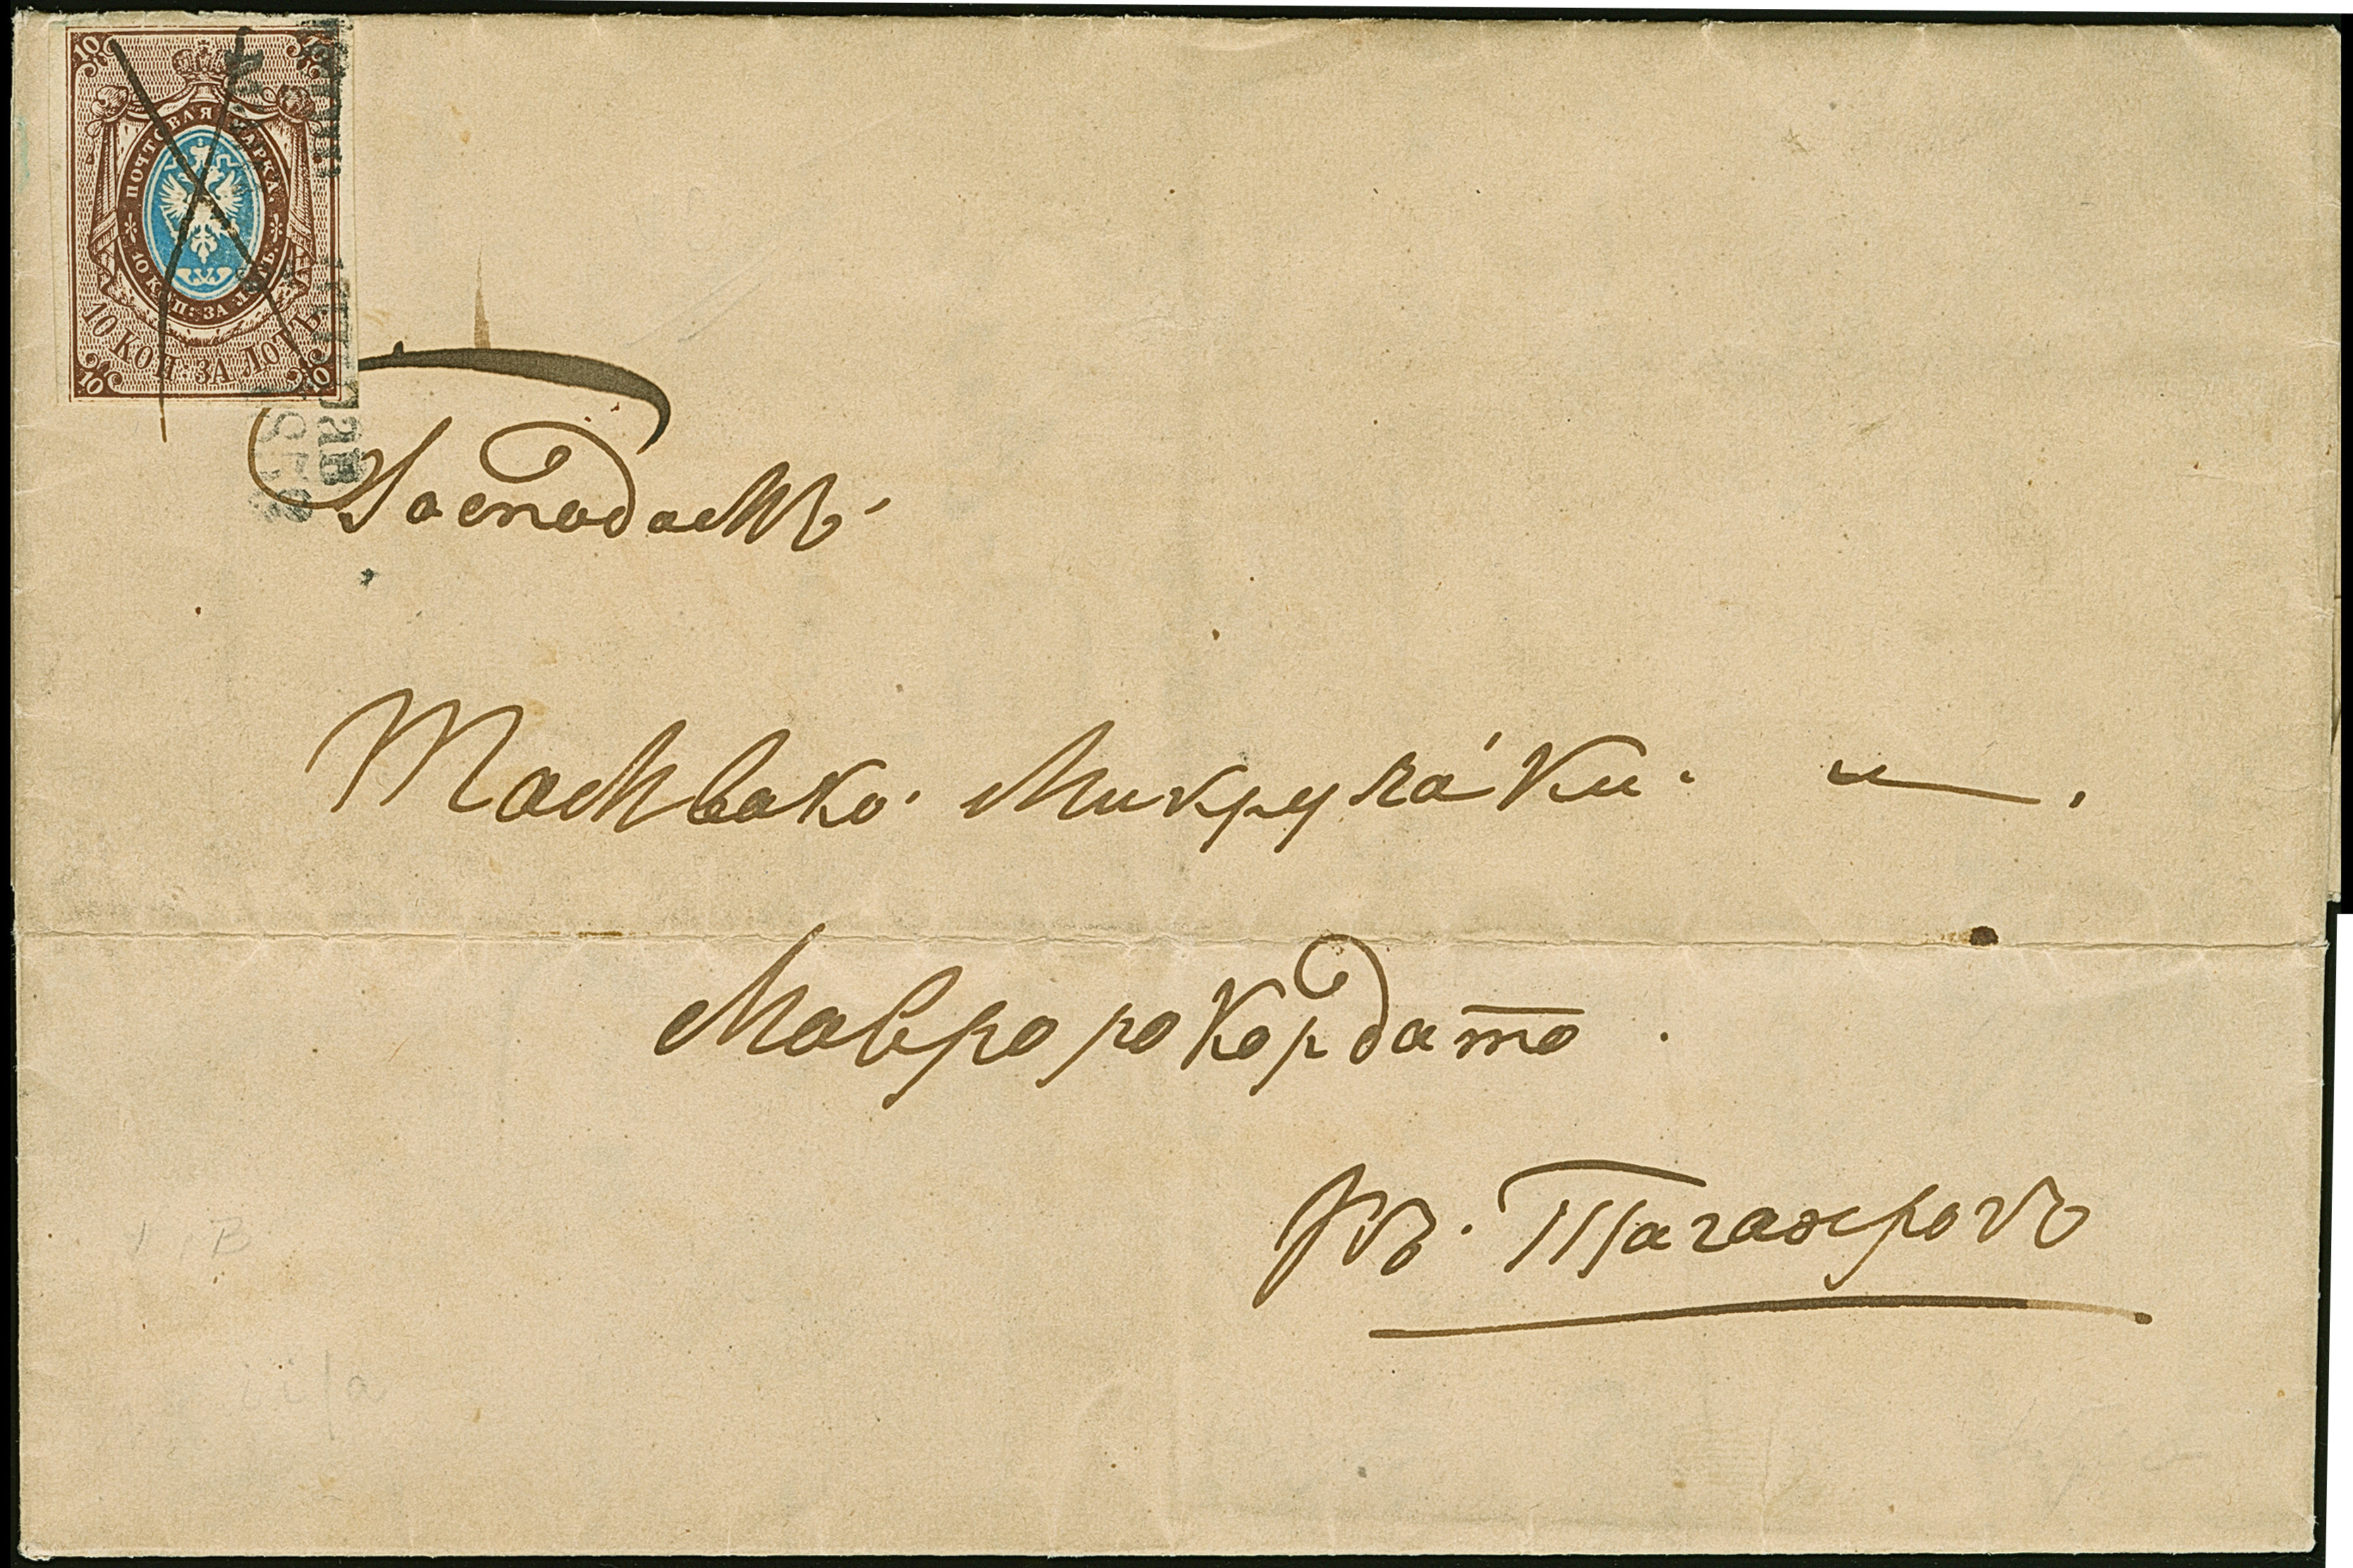 10 10
ПОЧТОВАЯ МАРКА
10 КОП: ЗА ЛОТЪ.
10 КОП: ЗА ЛОТЪ
10 10
Господамъ
Микрулаки. и.
Мавророкордато.
Въ. Таганрогъ